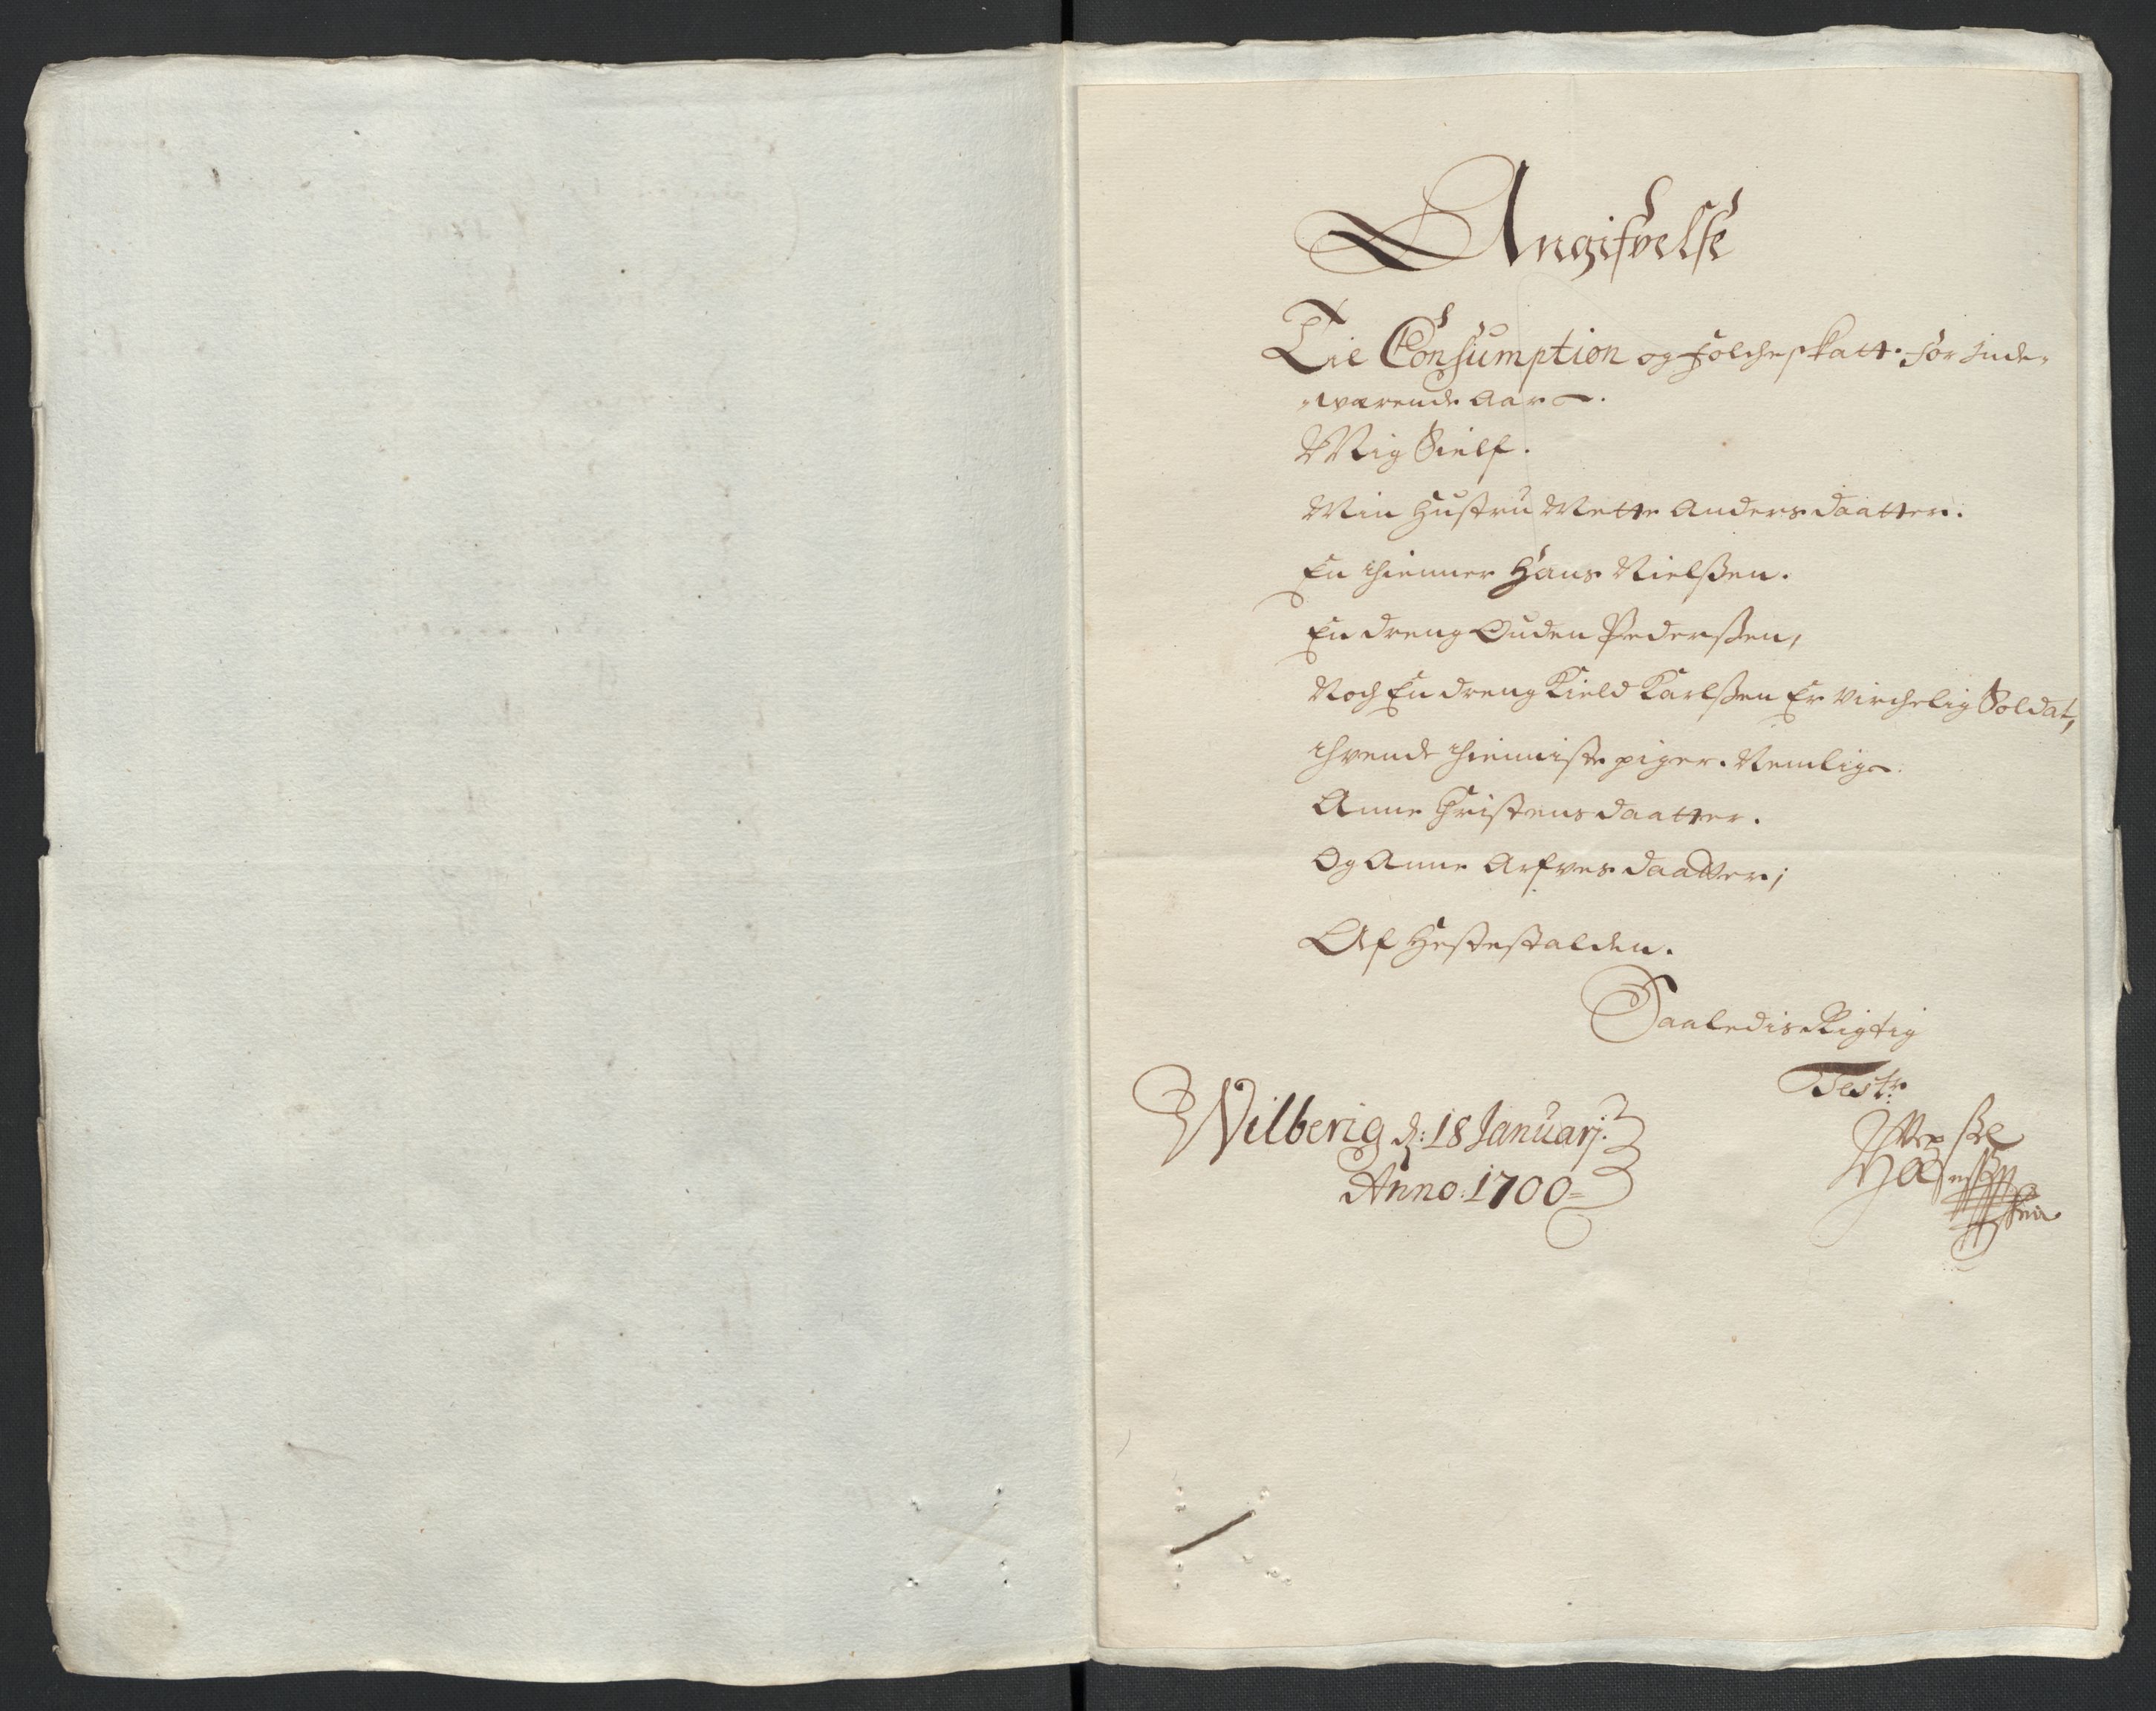 Angifvelse
Til Consumption og folcheskatt. for inde-
-werende Aar.
Mig Sielf.
Min hustru Mette Andersdaatter.
En thienner Hans Nielsßen.
En dreng Ouden Pedersßen,
Noch En dreng Kield Karlsßen Er virchelig Soldat,
thvende thienniste piger. Nemlig.
Anne Christensdaatter.
Og Anne Arfvesdaatter;
Af Hestestalden.
Saaledis Rigtig
Test:
Wilberig d: 18 Januarj:
Anno: 1700=